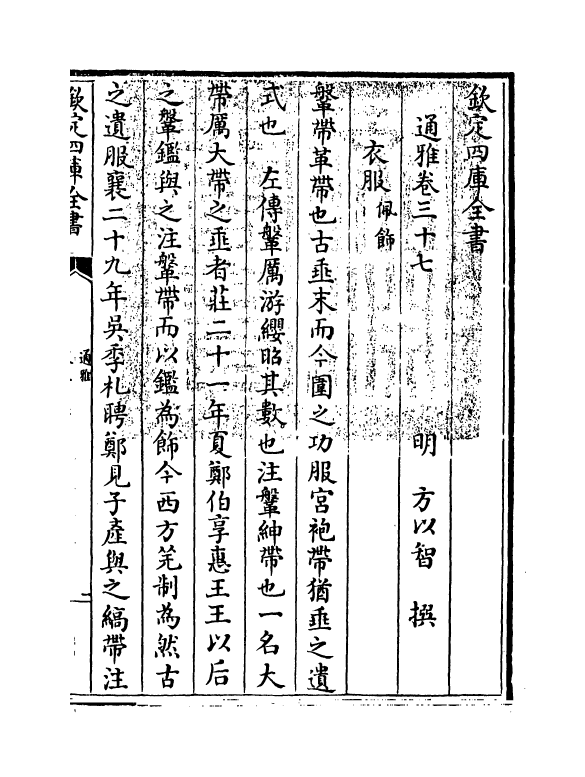 欽定四庫全書
通雅卷三十七
明 方以智 撰
衣服佩飾
鞶帶革帶也古垂末而今圍之功服宮袍帶猶垂之遺
式也 左傳鞶厲游纓昭其數也注鞶紳帶也一名大
帶厲大帶之垂者莊二十一年夏鄭伯享惠王王以后
之鞶鑑與之注鞶帶而以鑑為飾今西方羌制為然古
之遺服襄二十九年吳季札聘鄭見子產與之縞帶注
欽定四庫全書
通雅